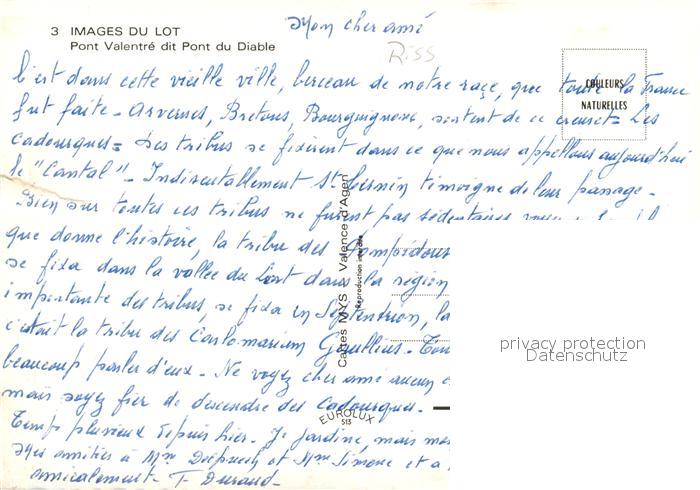 3 IMAGES DU LOT
Pont Valentré dit Pont du Diable
Mon cher amé
Riss
COULEURS
NATURELLES
C'est dans cette vieille ville, berceau de notre race, que toute la France
fut faite - Arvernes, Bretons, Bourguignons, sortent de ce creuset = Les
Cadourques = Les tribus se fixèrent dans ce que nous appellons aujourd'hui
le "Cantal" - St Cernin timoigne de leur passage -
Bien sur toutes ces tribus ne furent pas sédentaires
que donne l'histoire, la tribu des
se fixa dans la vallée du Lot dans la région
importante des tribus, se fixa en Septentrion, la
c'était la tribu des
beaucoup parler d'eux - Ne voyez cher amé aucun
mais soyez fier de descendre des Cadourques -
Temp pluvieux depuis hier. Je jardine, mais
Mes amitiés à Mme et Mme Simone et a
amicalement - T. Durand -
Cartes MYS Valence d'Agen
Reproduction interdite
EUROLUX
513
privacy protection
Datenschutz